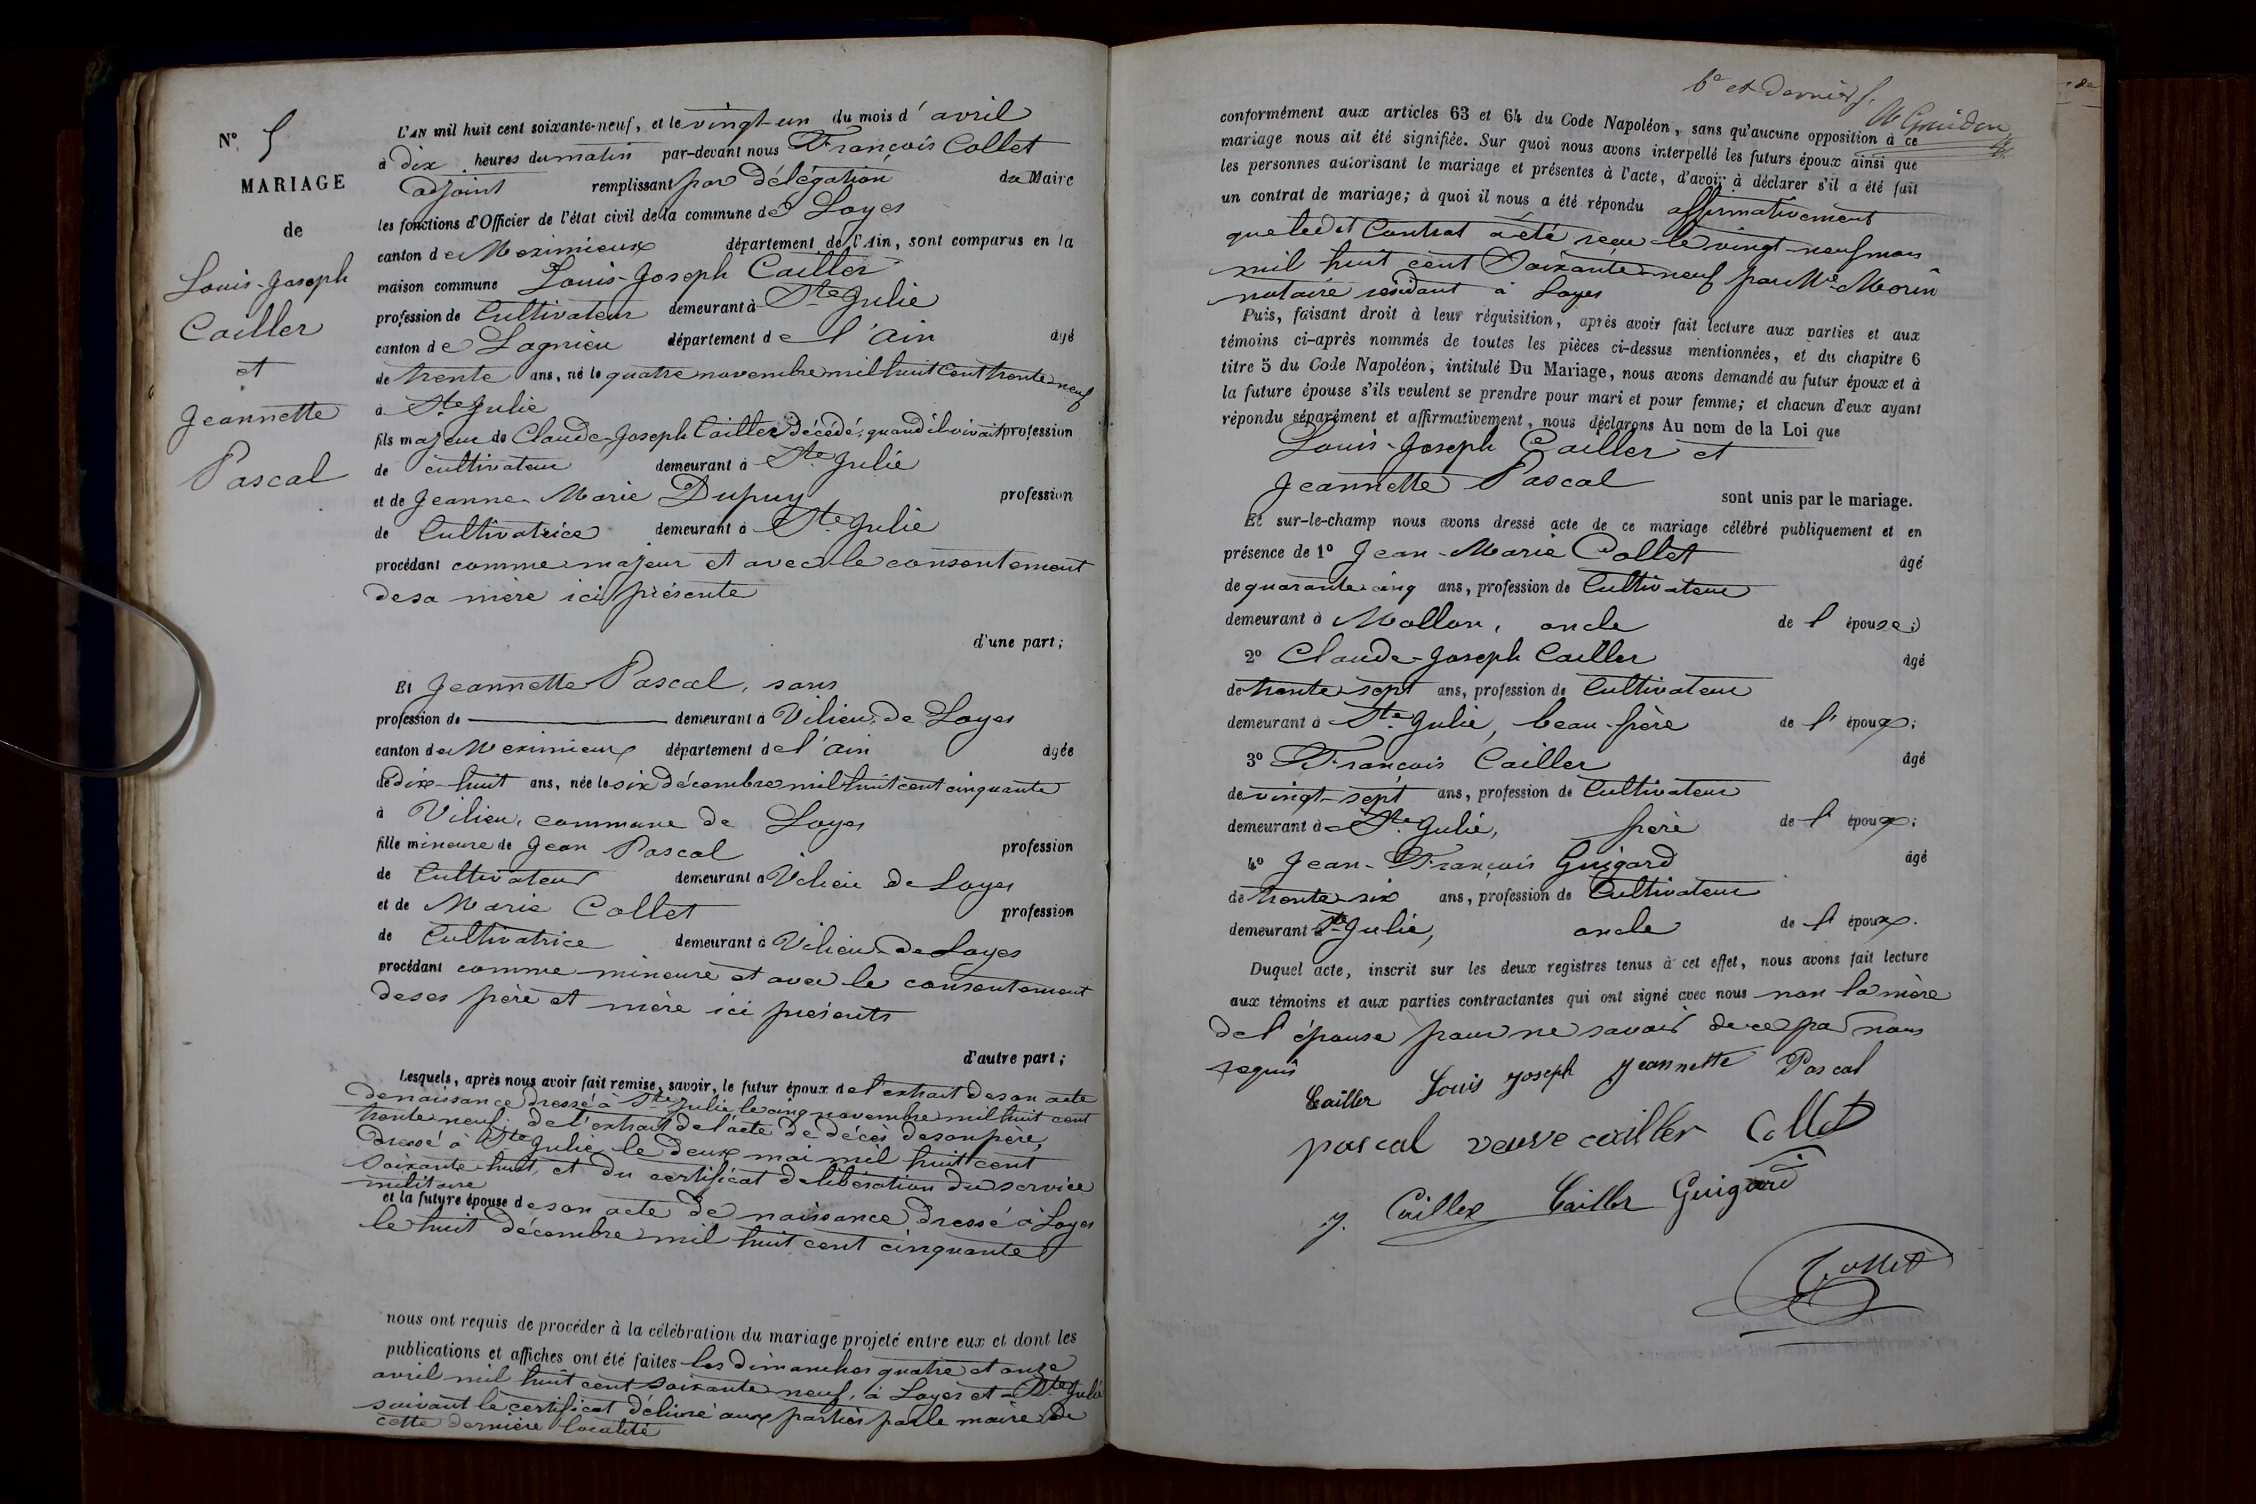 N° 5
MARIAGE
de
Louis-Joseph
Cailler
et
Jeannette
Pascal
L'AN mil huit cent soixante-neuf, et le vingt-un du mois d'avril
à dix heures du matin par-devant nous François Collet
adjoint remplissant par délégation du Maire
les fonctions d'Officier de l'état civil de la commune de Loyes
canton de Meximieux département de l'Ain, sont comparus en la
maison commune Louis-Joseph Cailler
profession de Cultivateur demeurant à Ste Julie
canton de Lagnieu département de l'Ain âgé
de trente ans, né le quatre novembre mil huit cent trente neuf
à Ste Julie
fils majeur de Claude-Joseph Cailler décédé, quand il vivait profession
de cultivateur demeurant à Ste Julie
et de Jeanne-Marie Dupuy profession
de Cultivatrice demeurant à Ste Julie
procédant comme majeur et avec le consentement
de sa mère ici présente
d'une part;
Et Jeannette Pascal, sans
profession de demeurant à Vilieu de Loyes
canton de Meximieux département de l'Ain âgée
de dix-huit ans, née le six décembre mil huit cent cinquante
à Vilieu, commune de Loyes
fille mineure de Jean Pascal profession
de Cultivateur demeurant à Vilieu de Loyes
et de Marie Collet profession
de Cultivatrice demeurant à Vilieu de Loyes
procédant comme mineure et avec le consentement
de ses père et mère ici présents
d'autre part;
Lesquels, après nous avoir fait remise, savoir, le futur époux de l'extrait de son acte
de naissance dressé à Ste Julie le cinq novembre mil huit cent
trente neuf, de l'extrait de l'acte de décès de son père,
dressé à Ste Julie le deux mai mil huit cent
soixante-huit, et du certificat de libération du service
militaire
et la future épouse de son acte de naissance dressé à Loyes
le huit décembre mil huit cent cinquante
nous ont requis de procéder à la célébration du mariage projeté entre eux et dont les
publications et affiches ont été faites les dimanches quatre et onze
avril mil huit cent soixante neuf, à Loyes et Ste Julie
suivant le certificat délivré aux parties par le maire de
cette dernière localité
6e et dernier f.
conformément aux articles 63 et 64 du Code Napoléon, sans qu'aucune opposition à ce
mariage nous ait été signifiée. Sur quoi nous avons interpellé les futurs époux ainsi que
les personnes autorisant le mariage et présentes à l'acte, d'avoir à déclarer s'il a été fait
un contrat de mariage; à quoi il nous a été répondu affirmativement
que ledit Contrat a été reçu le vingt-neuf mars
mil huit cent soixante-neuf par Me Morin
notaire résidant à Loyes
Puis, faisant droit à leur réquisition, après avoir fait lecture aux parties et aux
témoins ci-après nommés de toutes les pièces ci-dessus mentionnées, et du chapitre 6
titre 5 du Code Napoléon, intitulé Du Mariage, nous avons demandé au futur époux et à
la future épouse s'ils veulent se prendre pour mari et pour femme; et chacun d'eux ayant
répondu séparément et affirmativement, nous déclarons Au nom de la Loi que
Louis-Joseph Cailler et
Jeannette Pascal
sont unis par le mariage.
Et sur-le-champ nous avons dressé acte de ce mariage célébré publiquement et en
présence de 1° Jean-Marie Collet âgé
de quarante cinq ans, profession de Cultivateur
demeurant à Mollon, oncle de l'épouse;
2° Claude-Joseph Cailler âgé
de trente sept ans, profession de Cultivateur
demeurant à Ste Julie, beau-frère de l'époux;
3° François Cailler âgé
de vingt-sept ans, profession de Cultivateur
demeurant à Ste Julie, frère de l'époux;
4° Jean-François Guigard âgé
de trente-six ans, profession de Cultivateur
demeurant à Ste Julie, oncle de l'époux.
Duquel acte, inscrit sur les deux registres tenus à cet effet, nous avons fait lecture
aux témoins et aux parties contractantes qui ont signé avec nous non la mère
de l'épouse pour ne savoir de ce par nous
requis
Cailler Louis Joseph Jeannette Pascal
pascal veuve cailler Collet
J. Cailler Cailler Guigard
Collet